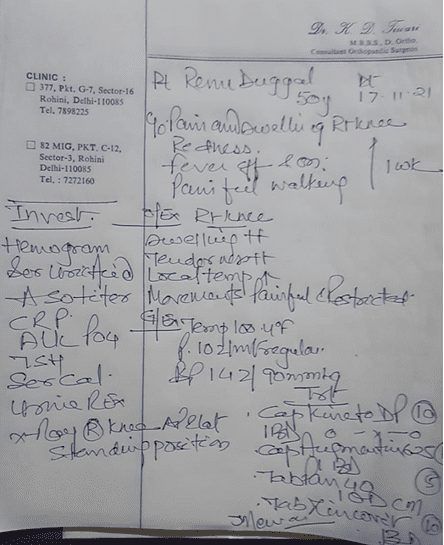 Dr. K. D. Tiwari
M.B.B.S., D. Ortho.
Consultant Orthopaedic Surgeon
CLINIC :
377, Pkt, G-7, Sector-16
Rohini, Delhi-110085
Tel. 7898225
82 MIG, PKT. C-12,
Sector-3, Rohini
Delhi-110085
Tel. : 7272160
Pt Renu Duggal
50y
Dt
17-11-21
C/o Pain and Swelling Rt knee
Redness.
Fever
Painful walking
1 wk
Invest.
Hemogram
Ser Uric Acid
ASO titer
CRP
Alk PO4
TSH
Ser Cal.
Urine R Ex
X-Ray (R) knee AP & Lat
Standing position
O/Ex Rt knee
Swelling ++
Tenderness ++
Local temp ↑
Movements Painful & Restricted.
G/Ex Temp 100.4°F
P. 102/m/regular.
BP 142/90mmHg
Trt
Cap Kineto DP (10)
1 BD 0-x-0
Cap Augmentin 625
1 BD
Tab Pan 40 (5)
1 OD CM
Tab Xincover (10)
BD